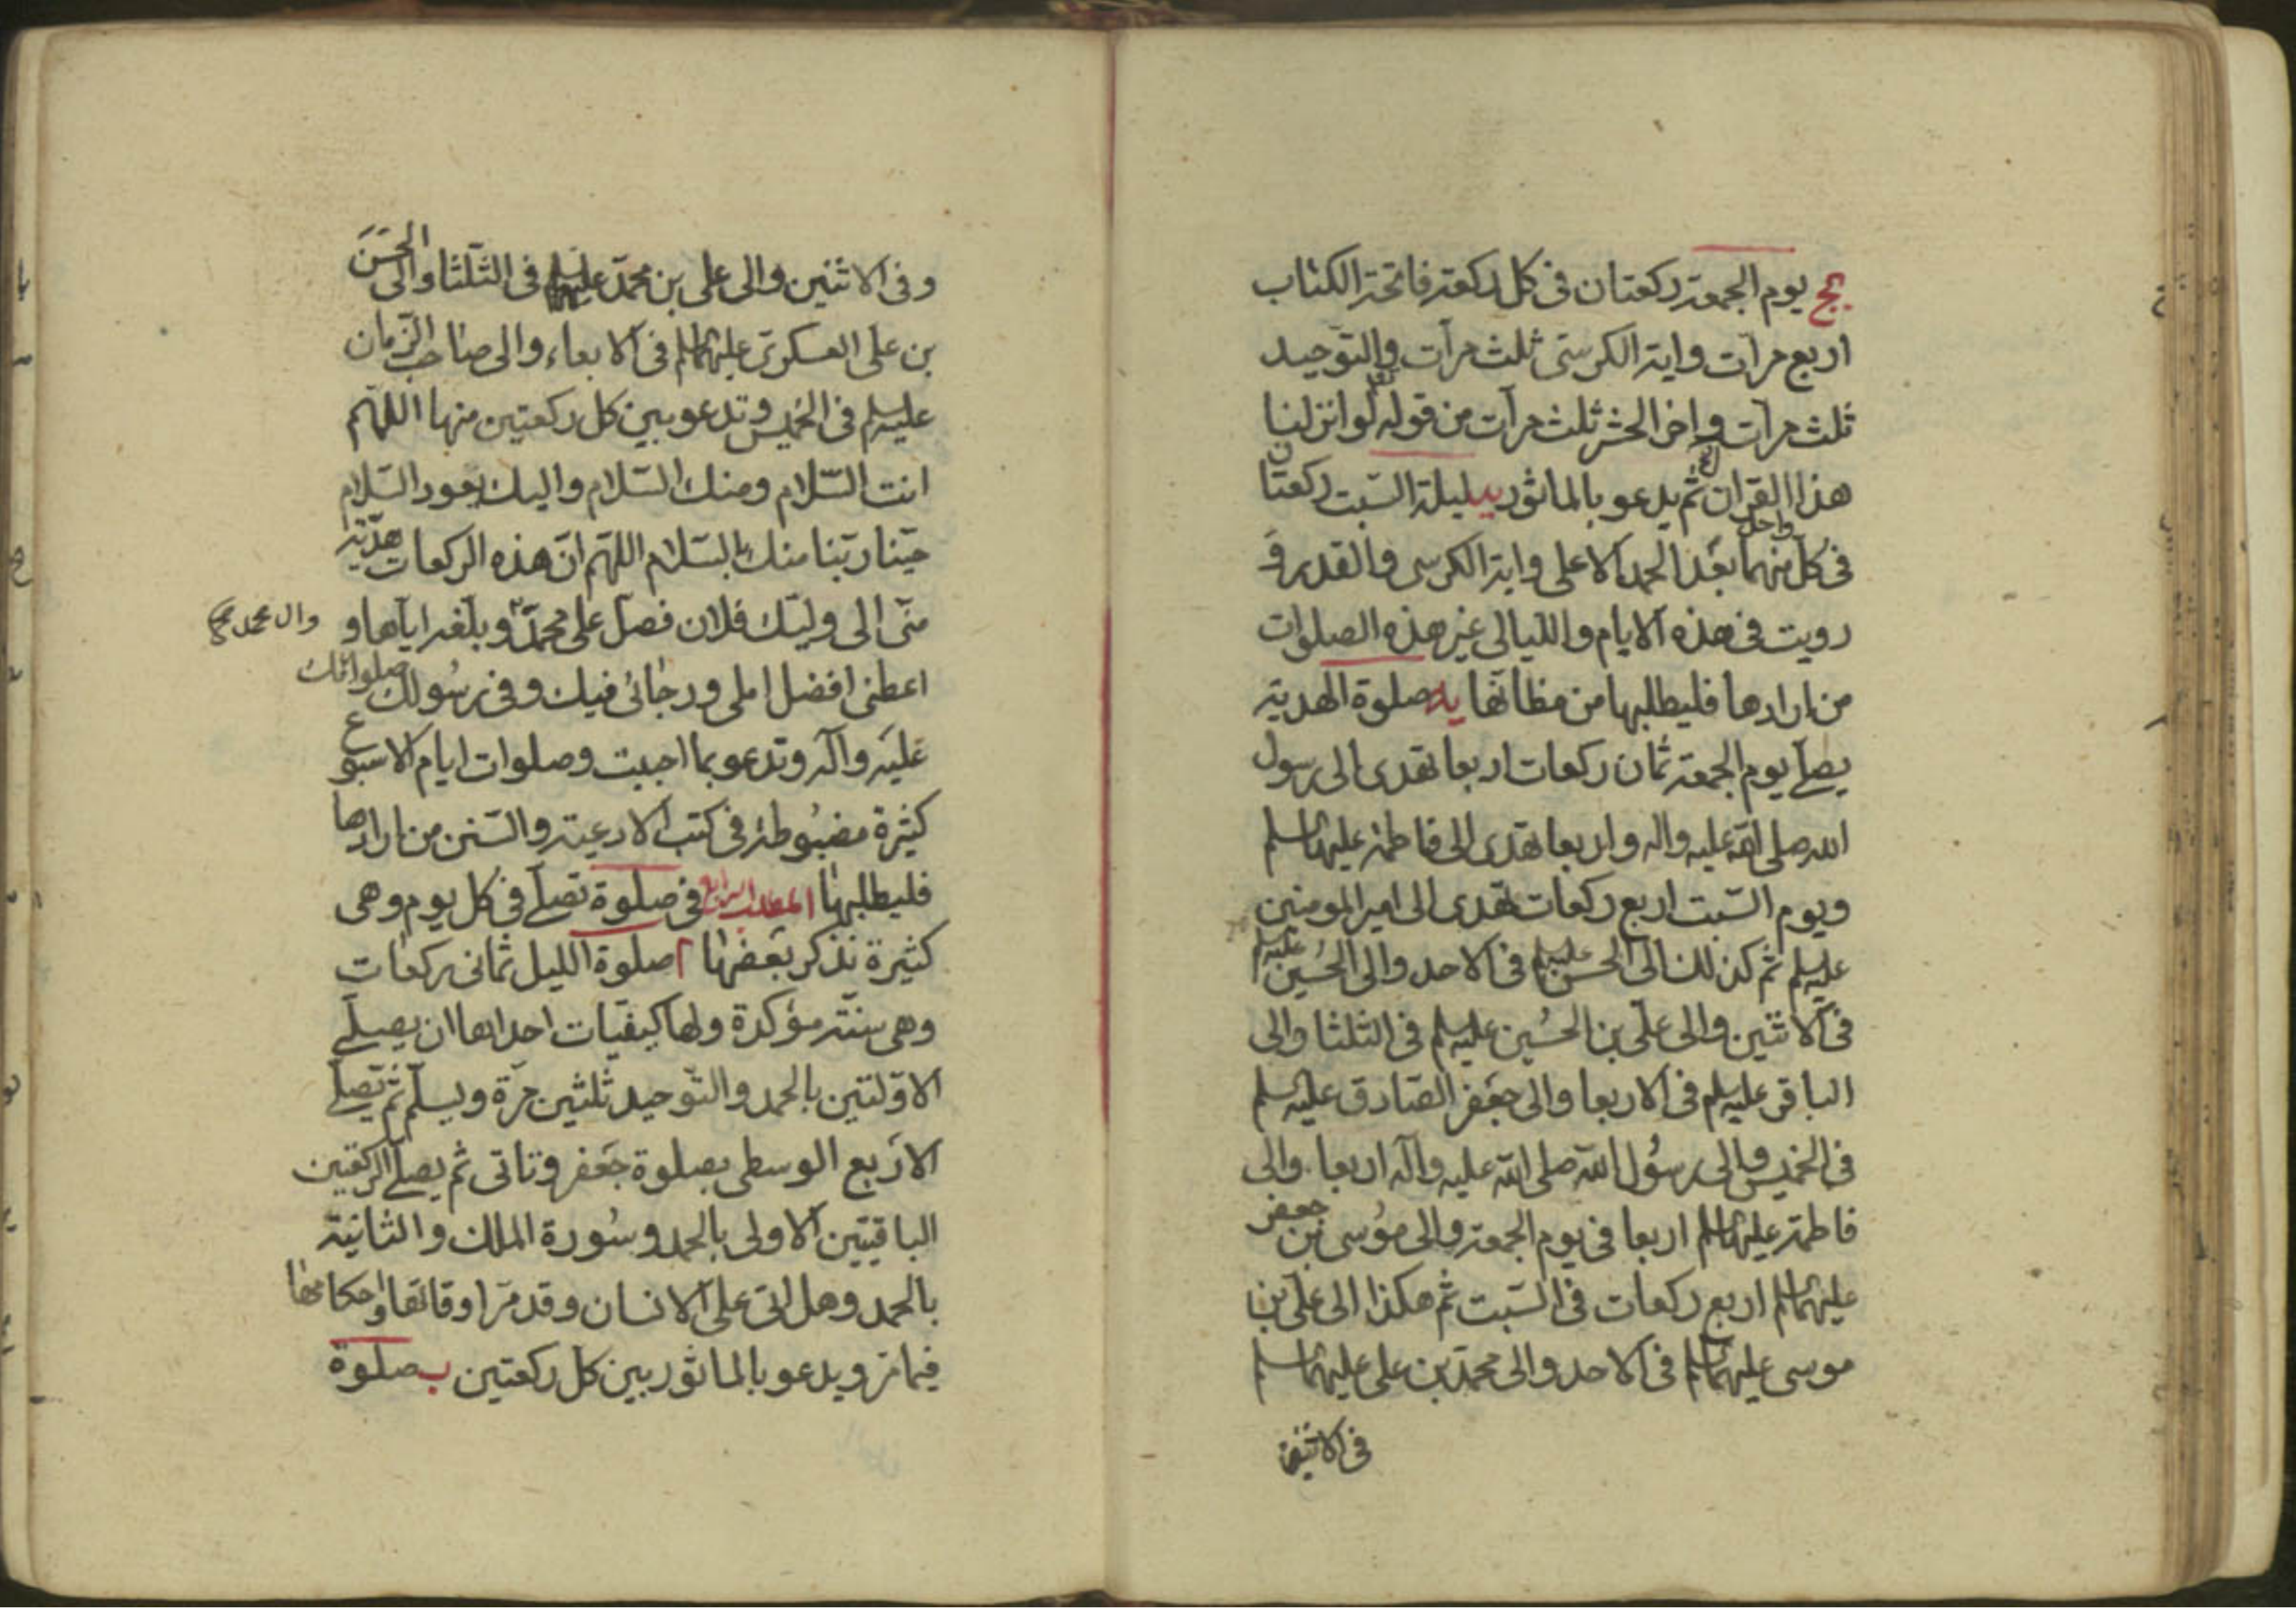 يج يوم الجمعة ركعتان فى كل ركعة فاتحة الكتاب
اربع مرات واية الكرسى ثلث مرات والتوحيد
ثلث مرات واخر الحشر ثلث مرات من قوله لو انزلنا
هذا القران ثم يدعو بالماثور يد ليلة السبت ركعتان
فى كل منهما بعد الحمد الاعلى واية الكرسى والقدر و
واحد
رويت فى هذه الايام والليالى غير هذه الصلوات
من ارادها فليطلبها من مظانها يه صلوة الهدية
يصلى يوم الجمعة ثمان ركعات اربعا تهدى الى رسول
الله صلى الله عليه واله واربعا تهدى الى فاطمة عليها السلم
ويوم السبت اربع ركعات تهدى الى امير المومنين
عليه السلم ثم كذلك الى الحسن عليه السلم فى الاحد والى الحسين عليه السلم
فى الاثنين والى على بن الحسين عليه السلم فى الثلثا والى
الباقر عليه السلم فى الاربعا والى جعفر الصادق عليه السلم
فى الخميس والى رسول الله صلى الله عليه وآله اربعا والى
فاطمة عليها السلم اربعا فى يوم الجمعة والى موسى بن جعفر
عليهما السلم اربع ركعات فى السبت ثم هكذا الى على بن
موسى عليهما السلم فى الاحد والى محمد بن على عليهما السلم
فى الاثنين
وفى الاثنين والى على بن محمد عليهما السلم فى الثلثا والى الحسن
بن على العسكرى عليهما السلم فى الاربعاء والى صاحب الزمان
عليه السلم فى الخميس وتدعو بين كل ركعتين منها اللهم
انت السلام ومنك السلام واليك يعود السلام
حينا ربنا منك بالسلام اللهم ان هذه الركعات هدية
منى الى وليك فلان فصل على محمد وبلغه اياها و
وال محمد صح
اعطنى افضل املى ورجائى فيك وفى رسولك صلواتك
عليه وآله وتدعو بما احببت وصلوات ايام الاسبوع
كثيرة مضبوطة فى كتب الادعية والسنن من ارادها
فليطلبها المطلب الرابع فى صلوة تصلى فى كل يوم وهى
كثيرة نذكر بعضها ا صلوة الليل ثمانى ركعات
وهى سنة مؤكدة ولها كيفيات احداها ان يصلى
الاولتين بالحمد والتوحيد ثلثين مرة ويسلم ثم يصلى
الاربع الوسطى بصلوة جعفر وتاتى ثم يصلى الركعتين
الباقيتين الاولى بالحمد وسورة الملك والثانية
بالحمد وهل اتى على الانسان وقد مر اوقاتها واحكامها
فيما مر ويدعو بالماثور بين كل ركعتين ب صلوة